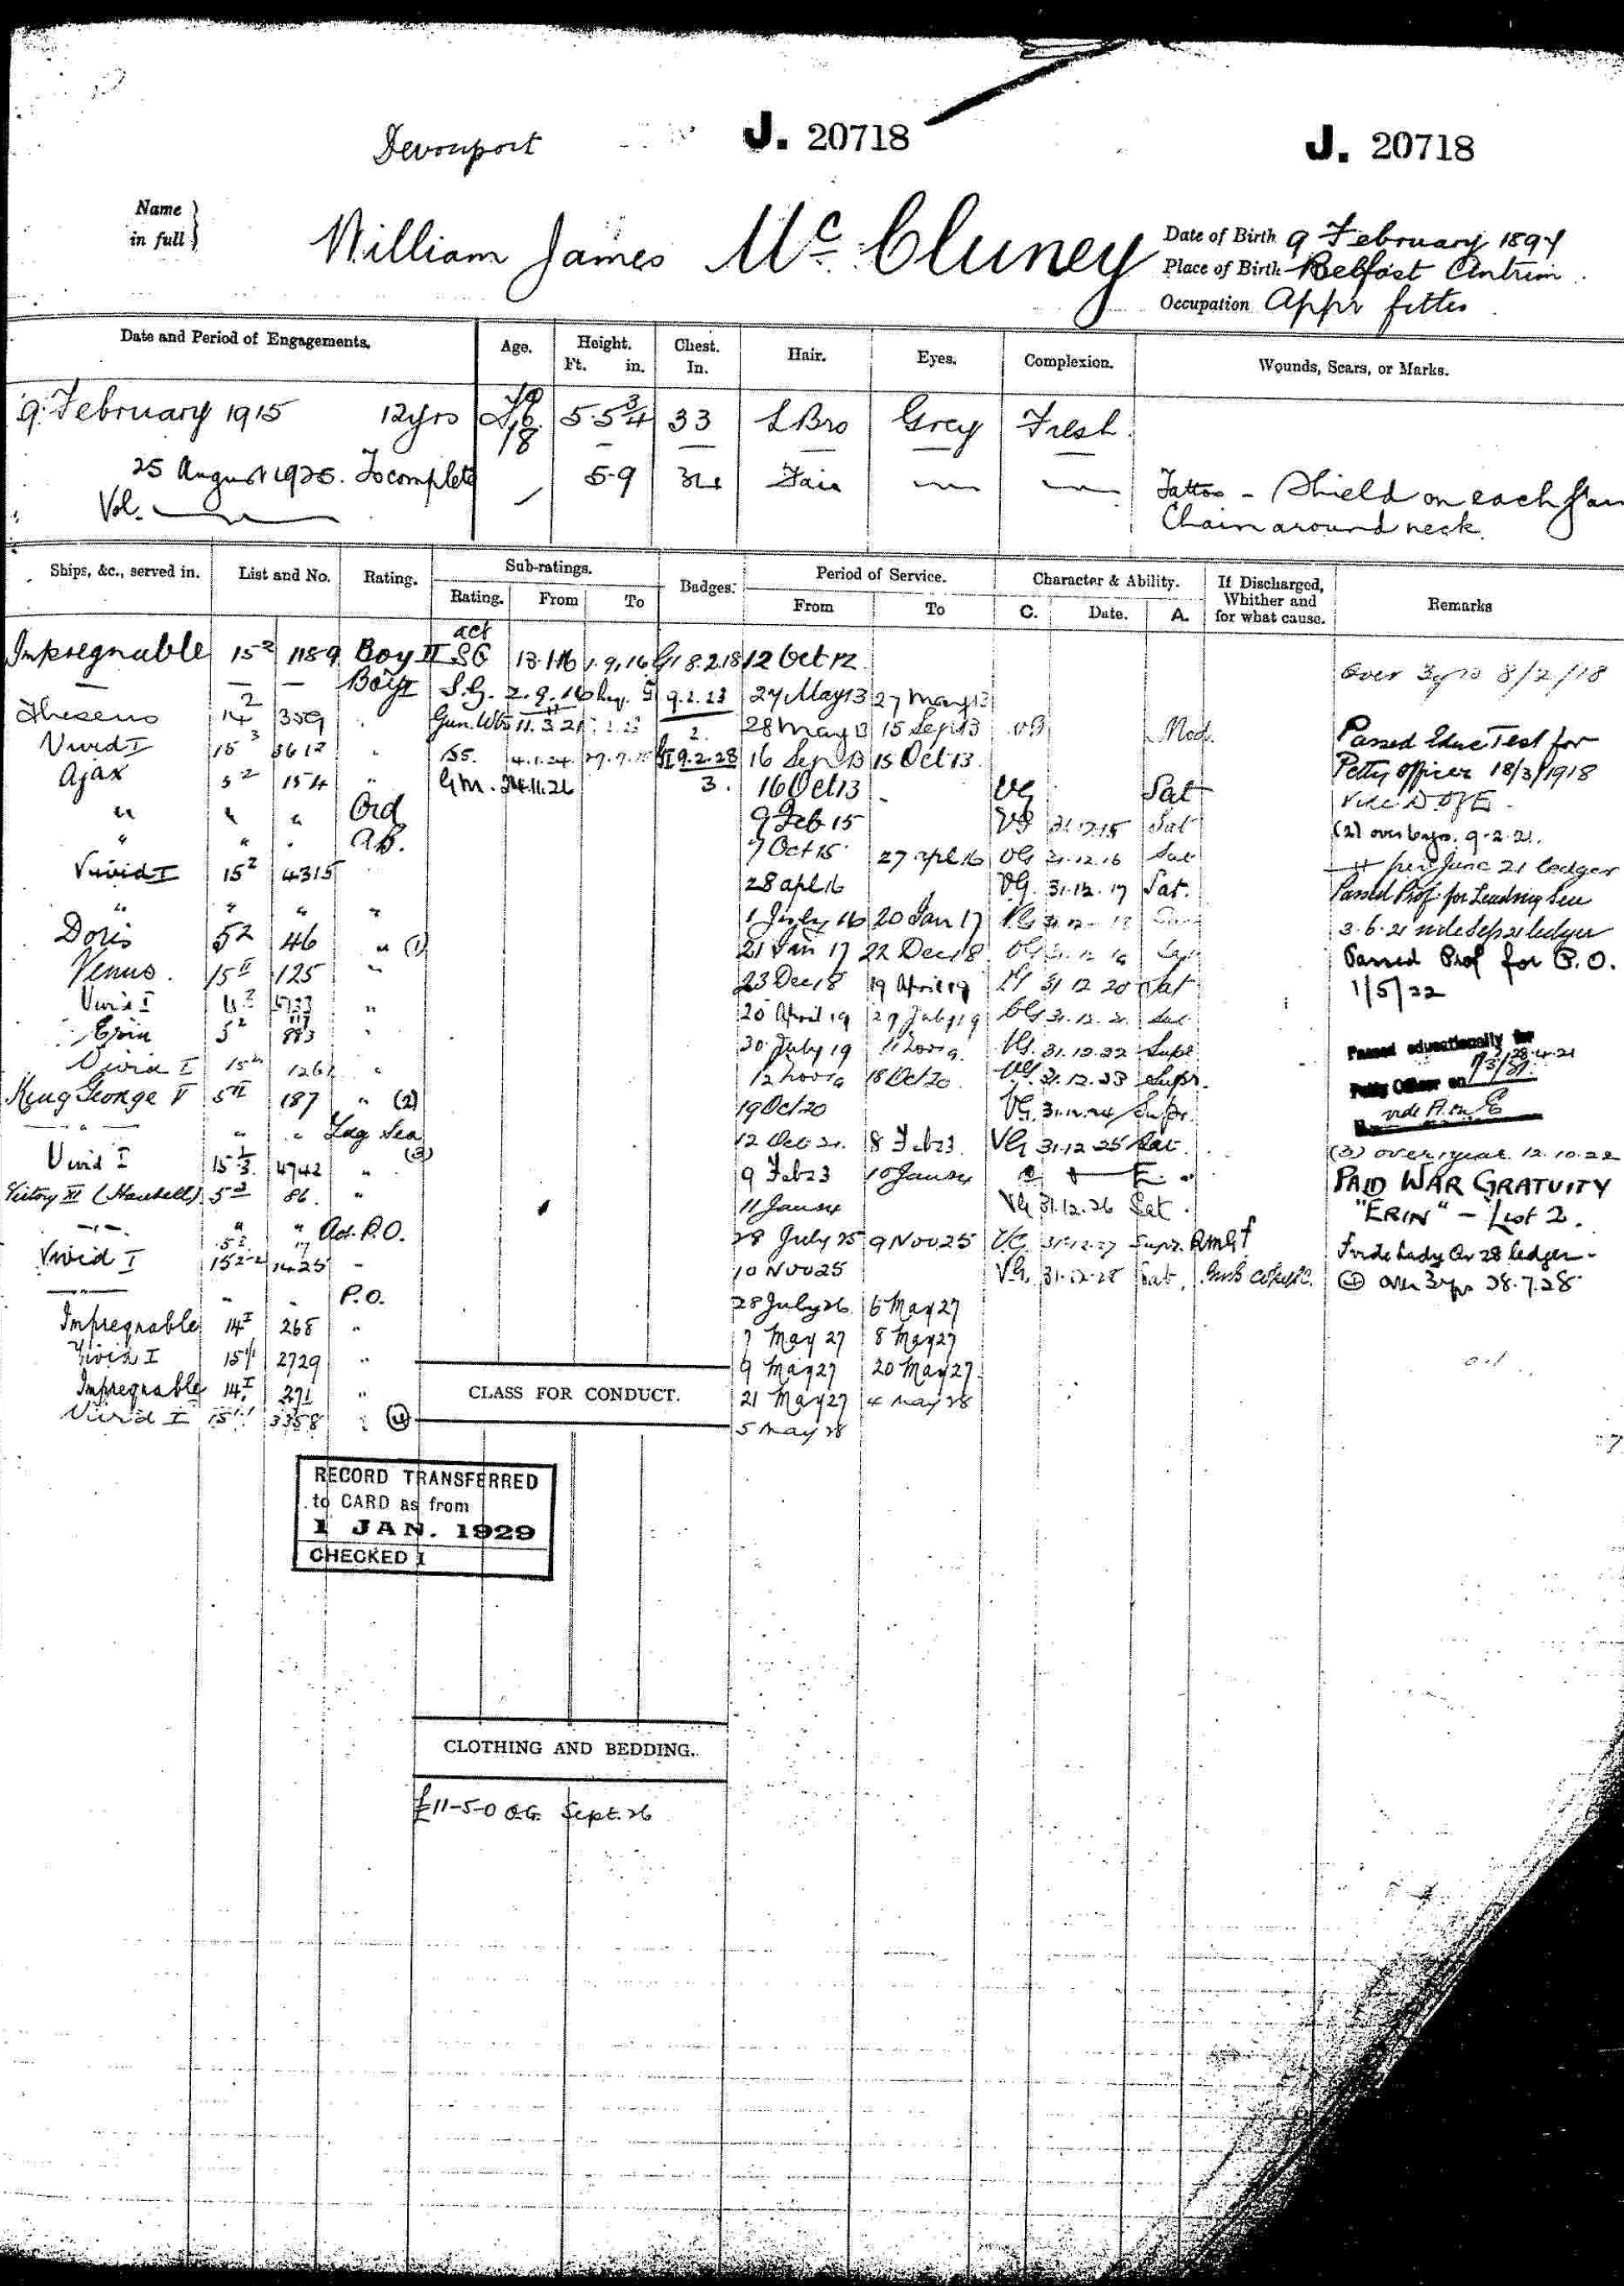 Devonport J. 20718 J. 20718
Name in full William James McCluney
Date of Birth 9 February 1897
Place of Birth Belfast Antrim
Occupation Appr fitter
Date and Period of Engagements. Age. Height. Ft. in. Chest. In. Hair. Eyes. Complexion. Wounds, Scars, or Marks.
9 February 1915 12 yrs 18 5.5 3/4 33 L Bro Grey Fresh
25 August 1925. To complete 5-9 Fair Tattoo - Shield on each
Vol. Chain around neck
Ships, &c., served in. List and No. Rating. Sub-ratings. Rating. From To Badges. Period of Service. From To Character & Ability. C. Date. A. If Discharged, Whither and for what cause. Remarks
Impregnable 15 2 1189 Boy II act SG 13.1.16 1.9.16 G1 8.2.18 12 Oct 12 Over 3 yrs 8/2/18
— — — Boy I S.G. 2.9.16 9.2.23 27 May 13 27 May 13
Theseus 14 2 359 " Gun. Wts 11.3.21 2. 28 May 13 15 Sep 13 VG Mod. Passed Educ Test for
Vivid I 15 3 3612 " 4.1.24 9.2.28 16 Sep 13 15 Oct 13 Petty Officer 18/3/1918
Ajax 5 2 154 " G.M. 24.11.26 3. 16 Oct 13 VG Sat
" " " Ord 9 Feb 15 VG 31.12.15 Sat (2) over 6 yrs. 9-2-21.
" " " A.B. 7 Oct 15 27 Apl 16 VG 31.12.16 Sat per June 21 ledger
Vivid I 15 2 4315 " 28 Apl 16 VG. 31.12.17 Sat. Passed Prof. for Leading Sea
" " " " 1 July 16 20 Jan 17 3.6.21 vide Sep 21 ledger
Doris 5 2 46 " (1) 21 Jan 17 22 Dec 18 Passed Prof for P.O.
Venus. 15 II 125 " 23 Dec 18 19 April 19 31 12 20 Sat 1/5/22
Vivid I " 20 April 19 29 July 19 Sat
Erin 5 2 " 30 July 19 VG. 31.12.22 Supr Passed educationally for
Vivid I 15 1261 " 18 Oct 20 VG. 31.12.23 Supr. Petty Officer on
King George V 5 II 187 " (2) 19 Oct 20 VG. 31.12.24 Supr.
" " " Ldg Sea 12 Oct 21. 8 Feb 23. VG 31.12.25 Sat
Vivid I 15 4742 " (3) 9 Feb 23 10 Jan 24 (3) over 1 year 12.10.22
Victory XI 5 86. " 11 Jan 24 VG 31.12.26 Sat PAID WAR GRATUITY
" " " Act. P.O. 28 July 25 9 Nov 25 VG. 31.12.27 Supr. RMG "ERIN" - List 2.
Vivid I 1425 - 10 Nov 25 V.G. 31.12.28 Sat
" " P.O. 28 July 26 6 May 27 (4) over 3 yrs 28.7.28
Impregnable 14 I 268 " 7 May 27 8 May 27
Vivid I 2729 " 9 May 27 20 May 27.
Impregnable 14 I 271 " 21 May 27 4 May 28
Vivid I 3358 (4) 5 May 28
CLASS FOR CONDUCT.
RECORD TRANSFERRED
to CARD as from
1 JAN. 1929
CHECKED 1
CLOTHING AND BEDDING.
£11-5-0 Sept. 26